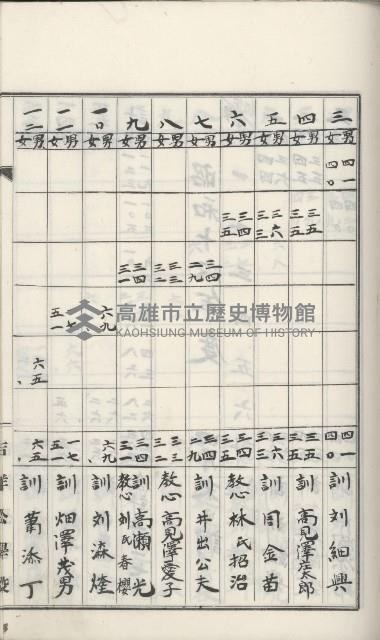 三 男 四一 四一 訓 劉細興
女 四〇 四〇
四 男 三五 三五 訓 高見澤庄太郎
女 三五 三五
五 男 三六 三六 訓 周金苗
女 三三 三三
六 男 三四 三四 教心 林氏招治
女 三五 三五
七 男 三四 三四 訓 井出公夫
女 二九 二九
八 男 三三 三三 教心 高見澤愛子
女 三二 三二
九 男 三四 三四 訓 高瀬光
女 三一 三一 教心 劉氏春櫻
一〇 男 六九 六九 訓 劉森煃
女
一一 男 一七 一七 訓 畑澤茂男
女 五一 五一
一二 男 六五 六五 訓 蕭添丁
女
高雄市立歷史博物館
KAOHSIUNG MUSEUM OF HISTORY